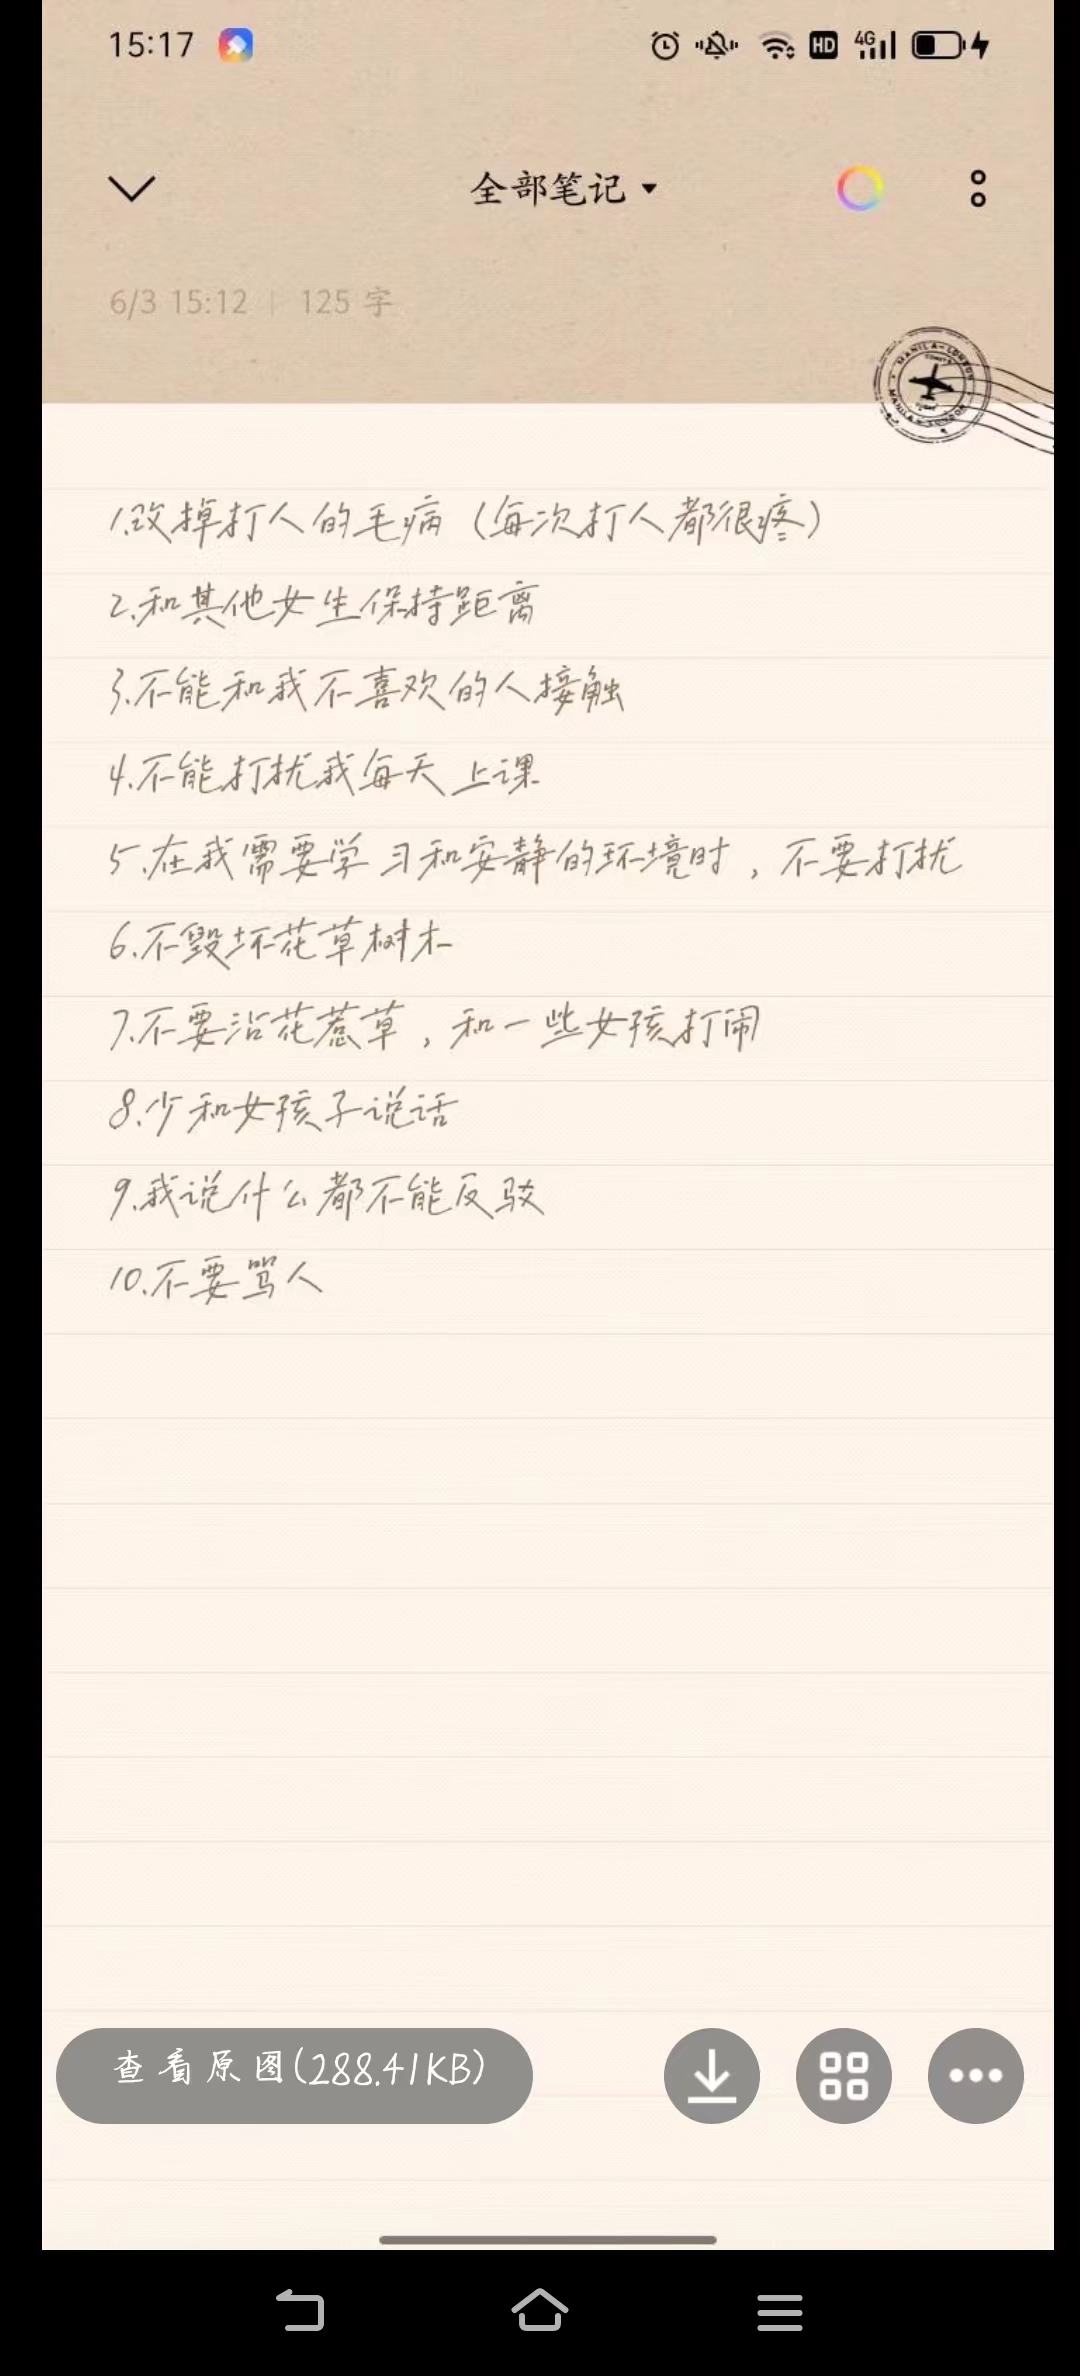 15:17
HD 4G
全部笔记
6/3 15:12 | 125 字
MANILA-LONDON
1.改掉打人的毛病（每次打人都很疼）
2.和其他女生保持距离
3.不能和我不喜欢的人接触
4.不能打扰我每天上课
5.在我需要学习和安静的环境时，不要打扰
6.不毁坏花草树木
7.不要沾花惹草，和一些女孩打闹
8.少和女孩子说话
9.我说什么都不能反驳
10.不要骂人
查看原图(288.41KB)